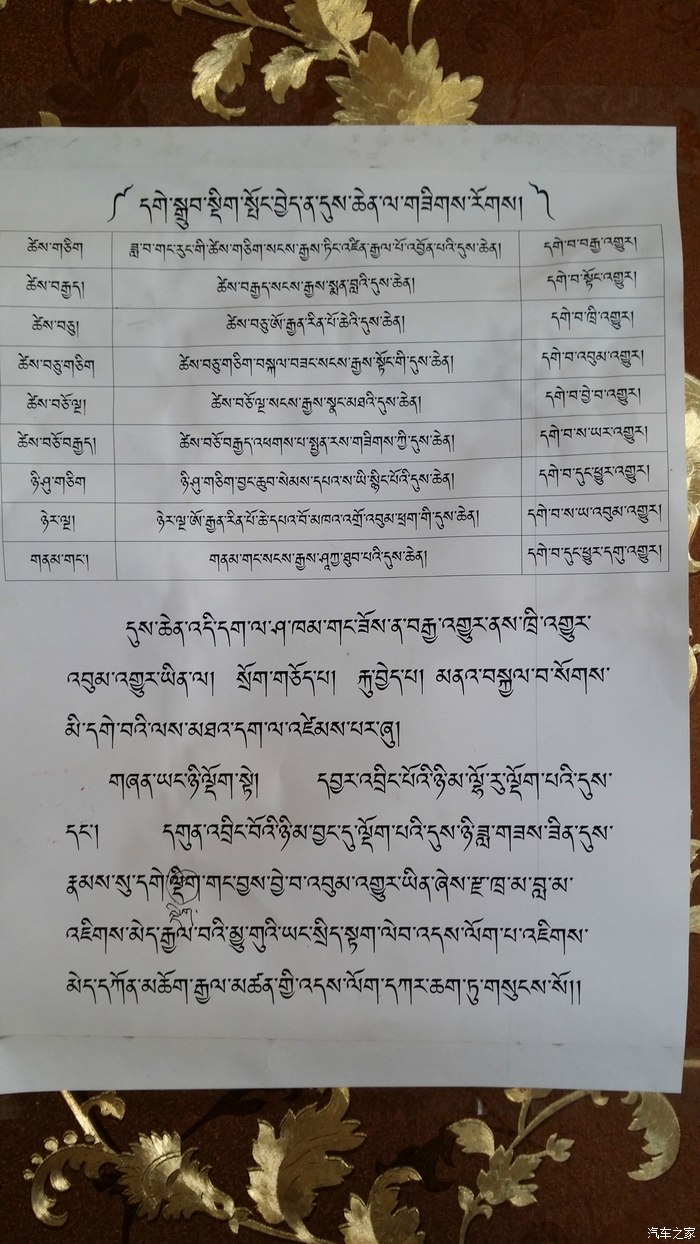 ༼ དགེ་སྒྲུབ་སྡིག་སྤོང་བྱེད་ན་དུས་ཆེན་ལ་གཟིགས་རོགས། ༽
ཚེས་གཅིག ཟླ་བ་གང་རུང་གི་ཚེས་གཅིག་སངས་རྒྱས་ཏིང་འཛིན་རྒྱལ་པོ་འབྱོན་པའི་དུས་ཆེན། དགེ་བ་བརྒྱ་འགྱུར།
ཚེས་བརྒྱད། ཚེས་བརྒྱད་སངས་རྒྱས་སྨན་བླའི་དུས་ཆེན། དགེ་བ་སྟོང་འགྱུར།
ཚེས་བཅུ། ཚེས་བཅུ་ཨོ་རྒྱན་རིན་པོ་ཆེའི་དུས་ཆེན། དགེ་བ་ཁྲི་འགྱུར།
ཚེས་བཅུ་གཅིག ཚེས་བཅུ་གཅིག་བསྐལ་བཟང་སངས་རྒྱས་སྟོང་གི་དུས་ཆེན། དགེ་བ་འབུམ་འགྱུར།
ཚེས་བཅོ་ལྔ། ཚེས་བཅོ་ལྔ་སངས་རྒྱས་སྣང་མཐའི་དུས་ཆེན། དགེ་བ་བྱེ་བ་འགྱུར།
ཚེས་བཅོ་བརྒྱད། ཚེས་བཅོ་བརྒྱད་འཕགས་པ་སྤྱན་རས་གཟིགས་ཀྱི་དུས་ཆེན། དགེ་བ་ས་ཡར་འགྱུར།
ཉི་ཤུ་གཅིག ཉི་ཤུ་གཅིག་བྱང་ཆུབ་སེམས་དཔའ་ས་ཡི་སྙིང་པོའི་དུས་ཆེན། དགེ་བ་དུང་ཕྱུར་འགྱུར།
ཉེར་ལྔ། ཉེར་ལྔ་ཨོ་རྒྱན་རིན་པོ་ཆེ་དཔའ་བོ་མཁའ་འགྲོ་འབུམ་ཕྲག་གི་དུས་ཆེན། དགེ་བ་ས་ཡ་འབུམ་འགྱུར།
གནམ་གང་། གནམ་གང་སངས་རྒྱས་ཤཱཀྱ་ཐུབ་པའི་དུས་ཆེན། དགེ་བ་དུང་ཕྱུར་དགུ་འགྱུར།
དུས་ཆེན་འདི་དག་ལ་ཤ་ཁམ་གང་ཟོས་ན་བརྒྱ་འགྱུར་ནས་ཁྲི་འགྱུར་
འབུམ་འགྱུར་ཡིན་ལ། སྲོག་གཅོད་པ། རྐུ་བྱེད་པ། མནའ་བསྐྱལ་བ་སོགས་
མི་དགེ་བའི་ལས་མཐའ་དག་ལ་འཛེམས་པར་ཞུ།
གཞན་ཡང་ཉི་ལྡོག་སྟེ། དབྱར་འབྲིང་པོའི་ཉི་མ་ལྷོ་རུ་ལྡོག་པའི་དུས་
དང་། དགུན་འབྲིང་བོའི་ཉི་མ་བྱང་དུ་ལྡོག་པའི་དུས་ཉི་ཟླ་གཟས་ཟིན་དུས་
རྣམས་སུ་དགེ་ལྡིག་གང་བྱས་བྱེ་བ་འབུམ་འགྱུར་ཡིན་ཞེས་རྫ་ཁྲ་མ་བླ་མ་
སྡིག་
འཇིགས་མེད་རྒྱལ་བའི་མྱུ་གུའི་ཡང་སྲིད་སྟག་ལེབ་འདས་ལོག་པ་འཇིགས་
མེད་དཀོན་མཆོག་རྒྱལ་མཚན་གྱི་འདས་ལོག་དཀར་ཆག་ཏུ་གསུངས་སོ།།
汽车之家